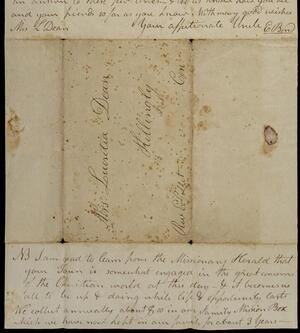 an answer to these few lines & let us know how you are
and your friends so far as you know. With many good wishes
Mrs L Dean Your affectionate Uncle E Bond
Mrs Lucretia Dean
Killingly
Con
NB I am glad to learn from the Missionary Herald that
your Town is somewhat engaged in the great concerns
of the Christian world at this day & it becomes us
all to be up & doing while life & opportunity lasts
We collect annually about in our family Mission Box
which we have now kept in our family for about 3 Years